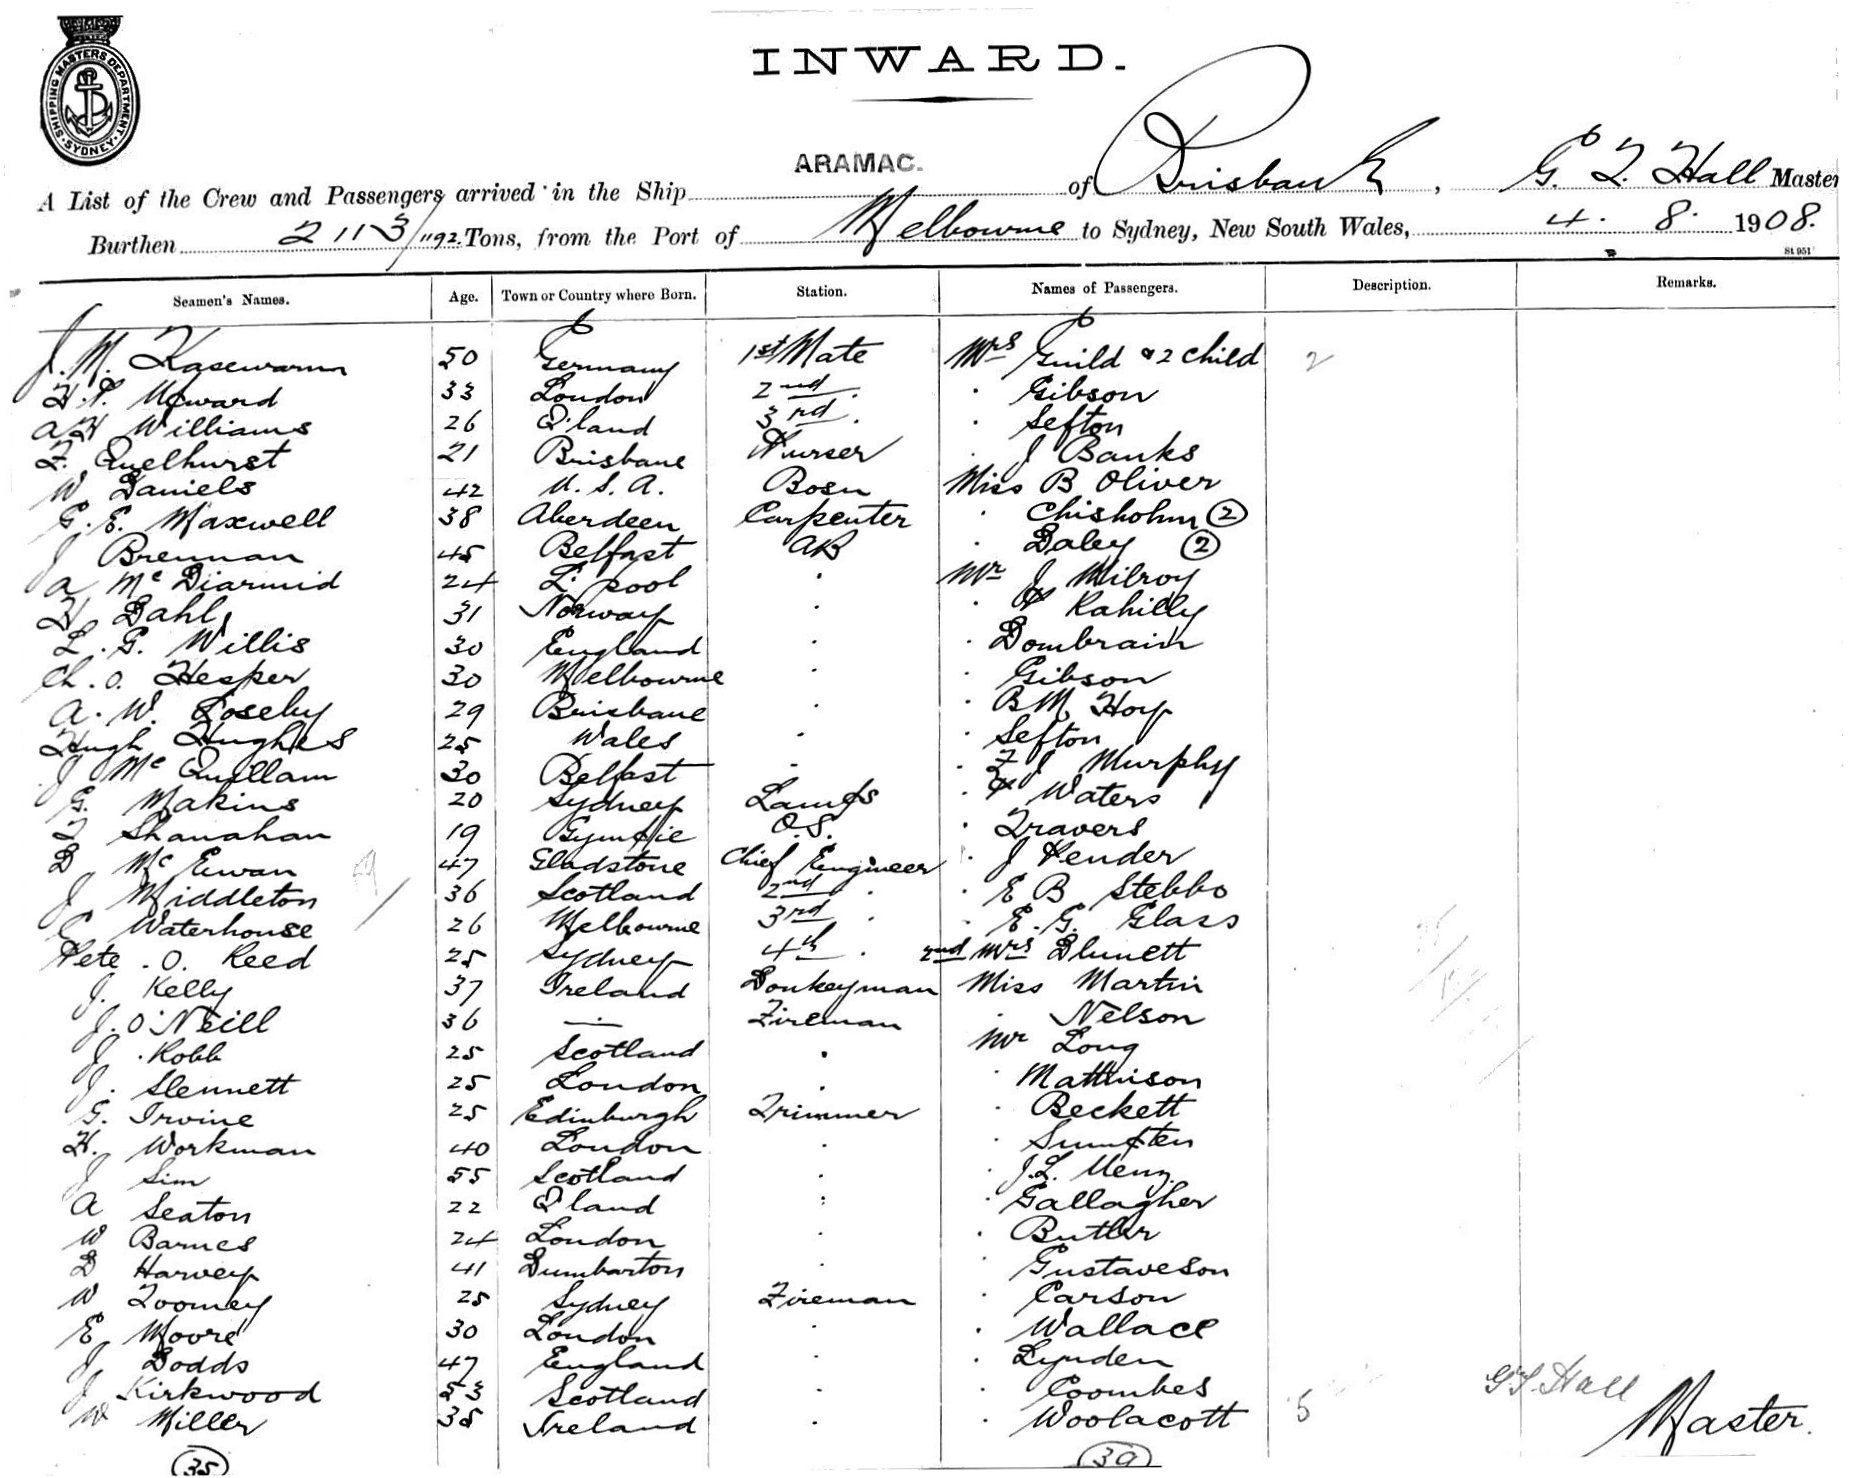 SHIPPING MASTERS DEPARTMENT SYDNEY
INWARD.
A List of the Crew and Passengers arrived in the Ship ARAMAC. of Brisbane, G. T. Hall Master
Burthen 2113/1192 Tons, from the Port of Melbourne to Sydney, New South Wales, 4. 8. 1908.
St 951
Seamen's Names. Age. Town or Country where Born. Station. Names of Passengers. Description. Remarks.
J. M. 50 Germany 1st Mate Mrs Guild & 2 child 2
H. P. Upward 33 London 2nd . . Gibson
A H Williams 26 Q'land 3rd . . Sefton
F. Quelhurst 21 Brisbane Purser . J Banks
W Daniels 42 U. S. A. Bosn Miss B Oliver
G. E. Maxwell 38 Aberdeen Carpenter . Chisholm (2)
J Brennan 45 Belfast AB . Daley (2)
A McDiarmid 24 L'pool . Mr J Milroy
H Dahl 31 Norway . . Rahilly
L. G. Willis 30 England . . Dombrain
Ch. O. Hesper 30 Melbourne . . Gibson
A. W. Loseby 29 Brisbane . . B M Hoy
Hugh Hughes 25 Wales . . Sefton
J McQuillam 30 Belfast . . F J Murphy
G. Makins 20 Sydney Lamps . Waters
T Shanahan 19 Gympie O.S. . Travers
D McEwan 47 Gladstone Chief Engineer . J Pender
J Middleton 36 Scotland 2nd . . E B Stebbo
C Waterhouse 26 Melbourne 3rd . . E. G. Glass
Pete. O. Reed 25 Sydney 4th . 2nd Mrs Blunett
J. Kelly 37 Ireland Donkeyman Miss Martin
J. O'Neill 36 — Fireman . Nelson
J. Robb 25 Scotland . Mr Long
J. Slennett 25 London . . Mathison
G. Irvine 25 Edinburgh Trimmer . Beckett
H. Workman 40 London . . Sumpten
J Sim 55 Scotland . . J. L.
A Seaton 22 Q'land . . Gallagher
W Barnes 24 London . . Butler
D Harvey 41 Dumbarton . . Gustaveson
W Toomey 25 Sydney Fireman . Carson
E Moore 30 London . . Wallace
J Dodds 47 England . . Lynden
J Kirkwood 53 Scotland . . Coombes
W Miller 38 Ireland . . Woolacott 5 G T Hall Master.
(35) (39)